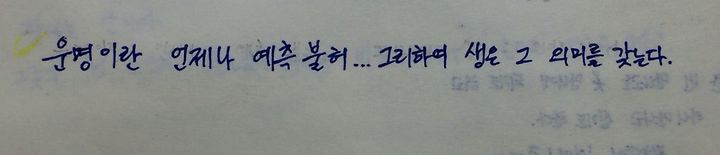 운명이란 언제나 예측 불허... 그리하여 생은 그 의미를 갖는다.